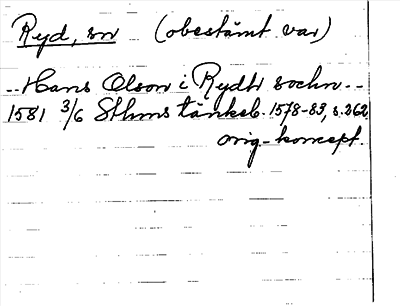 Ryd, sn (obestämt var)
.. Hans Olson i Rydh sochn ..
1581 3/6 Sthms tänkeb. 1578-83, s. 262,
orig.-koncept.